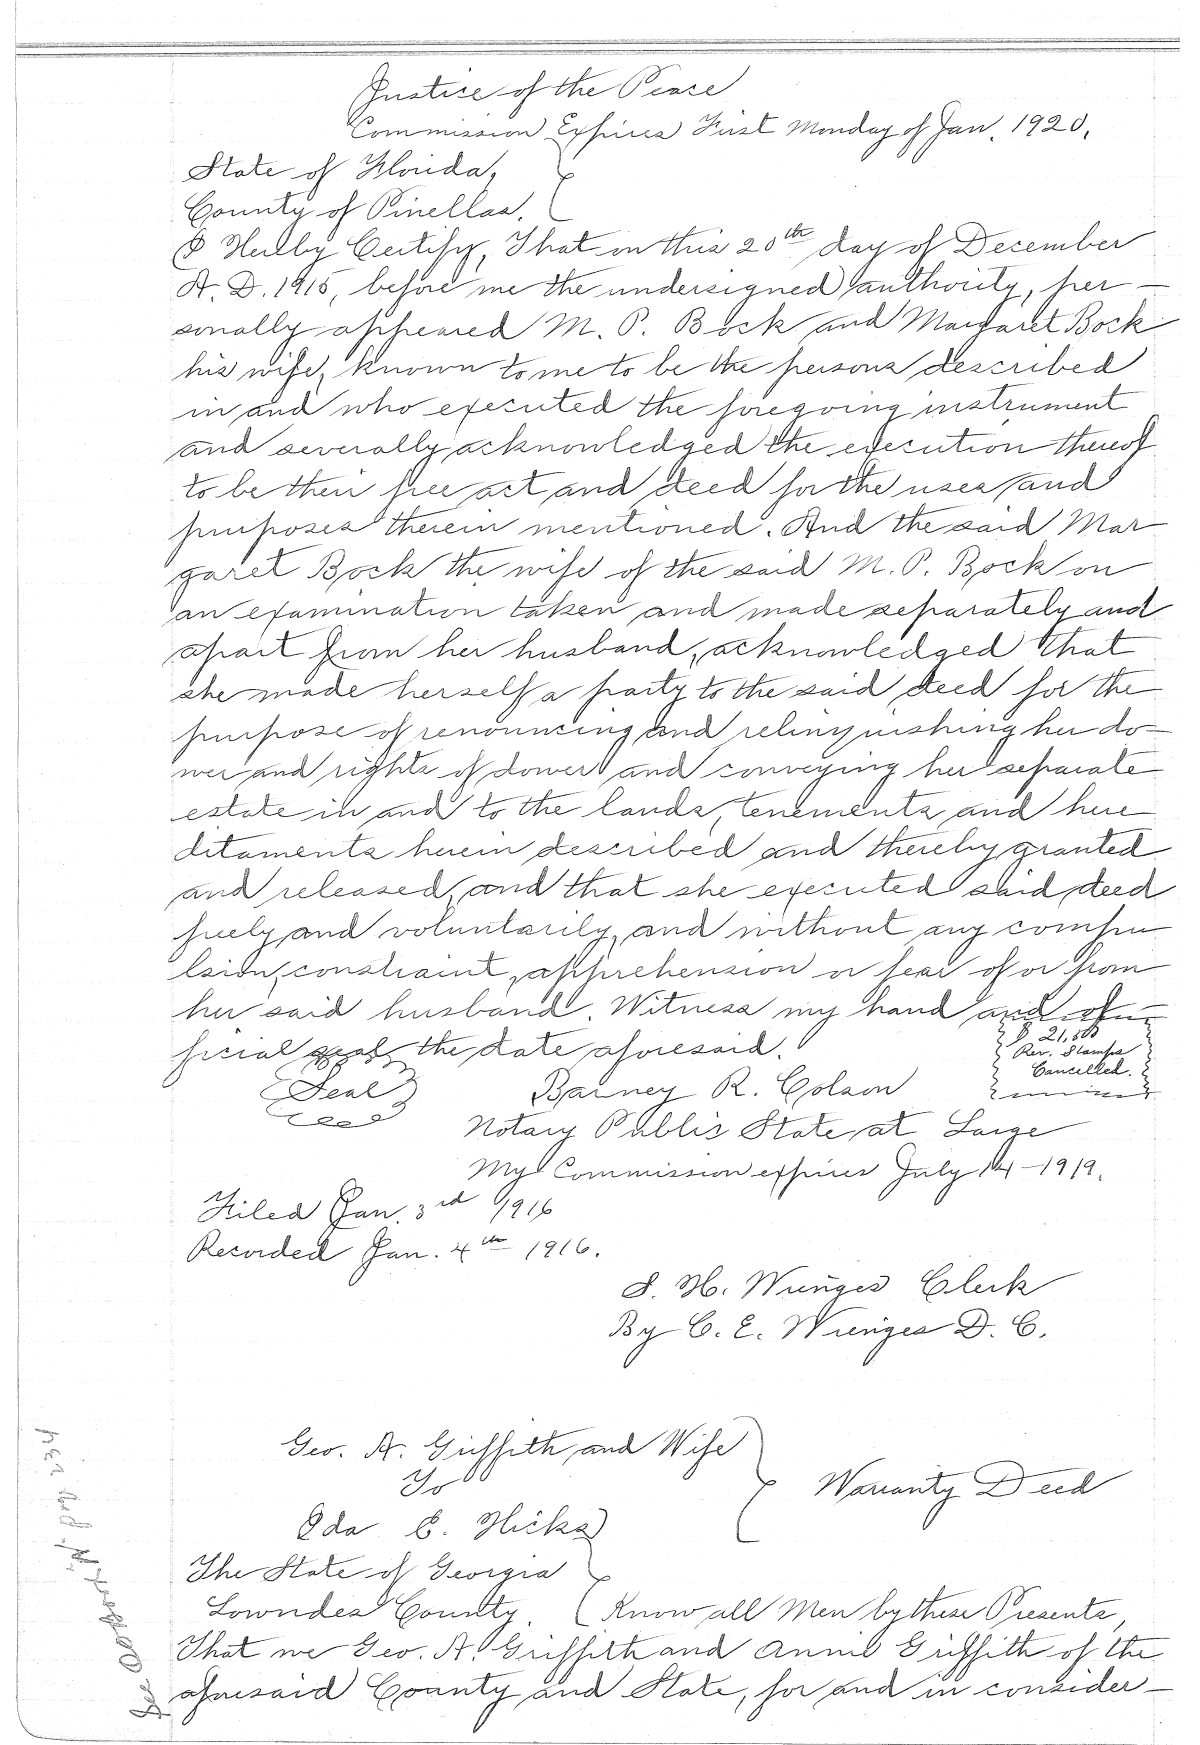 Justice of the Peace
Commission Expires First Monday of Jan. 1920.
State of Florida,
County of Pinellas.
I Hereby Certify, That on this 20th day of December
A. D. 1915, before me the undersigned authority, per-
sonally appeared M. P. Bock and Margaret Bock
his wife, known to me to be the persons described
in and who executed the foregoing instrument
and severally acknowledged the execution thereof
to be their free act and deed for the uses and
purposes therein mentioned. And the said Mar
garet Bock the wife of the said M. P. Bock on
an examination taken and made separately and
apart from her husband, acknowledged that
she made herself a party to the said deed for the
purpose of renouncing and relinquishing her do-
wer and rights of dower and conveying her separate
estate in and to the lands, tenements and here
ditaments herein described and thereby granted
and released, and that she executed said deed
freely and voluntarily, and without any compu
lsion, constraint, apprehension or fear of or from
her said husband. Witness my hand and of-
ficial seal the date aforesaid.
$ 21,500
Rev. Stamps
Cancelled.
Seal
Barney R. Colson
Notary Public State at Large
My Commission expires July 14-1919.
Filed Jan. 3rd 1916
Recorded Jan. 4th 1916.
Clerk
By C. E. D. C.
Geo. A. Griffith and Wife
To
Warranty Deed
Ida E. Hicks
The State of Georgia
Lowndes County. Know all Men by these Presents,
That we Geo. A. Griffith and Annie Griffith of the
aforesaid County and State, for and in consider-
See Book pag 234